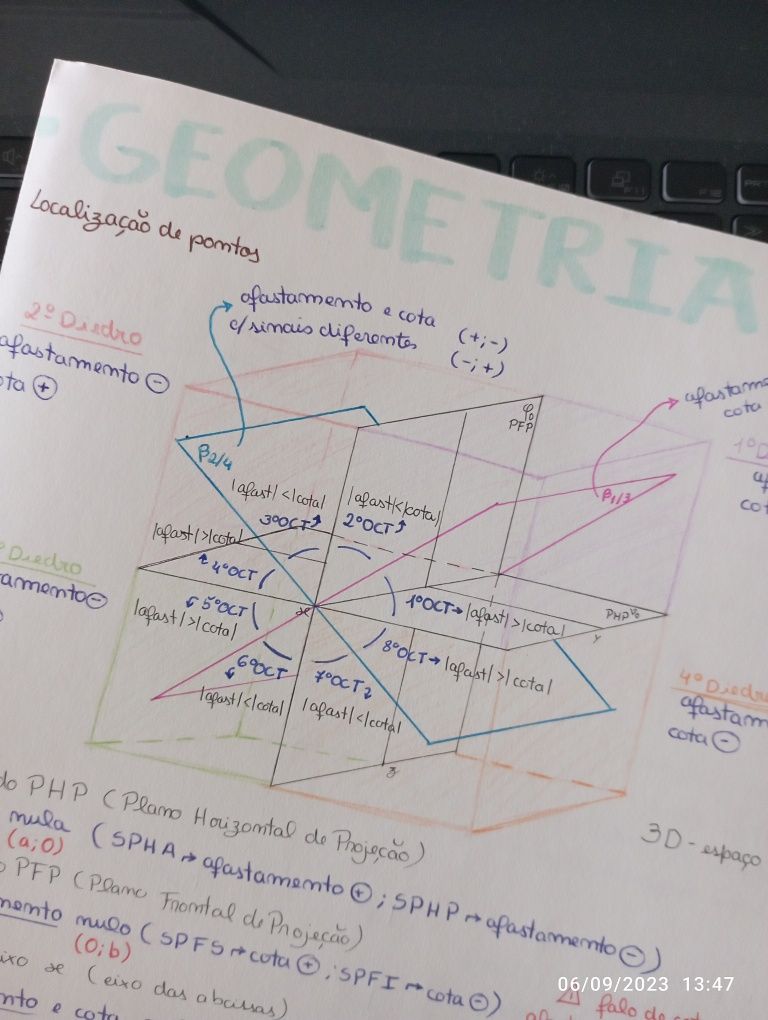 GEOMETRIA
Localização de pontos
afastamento e cota
c/sinais diferentes
(+;-)
(-;+)
2º Diedro
afastamento ⊖
ota ⊕
afastam
cota
φ0
PFP
β2/4
β1/3
|afast|<|cota|
3ºOCT
|afast|<|cota|
2ºOCT
|afast|>|cota|
4ºOCT
Diedro
tamento ⊖
5ºOCT
|afast|>|cota|
x
1ºOCT→|afast|>|cota|
PHP
y
8ºOCT→|afast|>|cota|
6ºOCT
|afast|<|cota|
7ºOCT
|afast|<|cota|
z
4º Diedro
afastam
cota ⊖
3D - espaço
do PHP (Plano Horizontal de Projeção)
nula (SPHA→afastamento ⊕; SPHP→afastamento ⊖)
(a;0)
PFP (Plano Frontal de Projeção)
mento nulo (SPFS→cota ⊕; SPFI→cota ⊖)
(0;b)
ixo x (eixo das abcissas)
nto e cota
⚠ falo de
06/09/2023 13:47